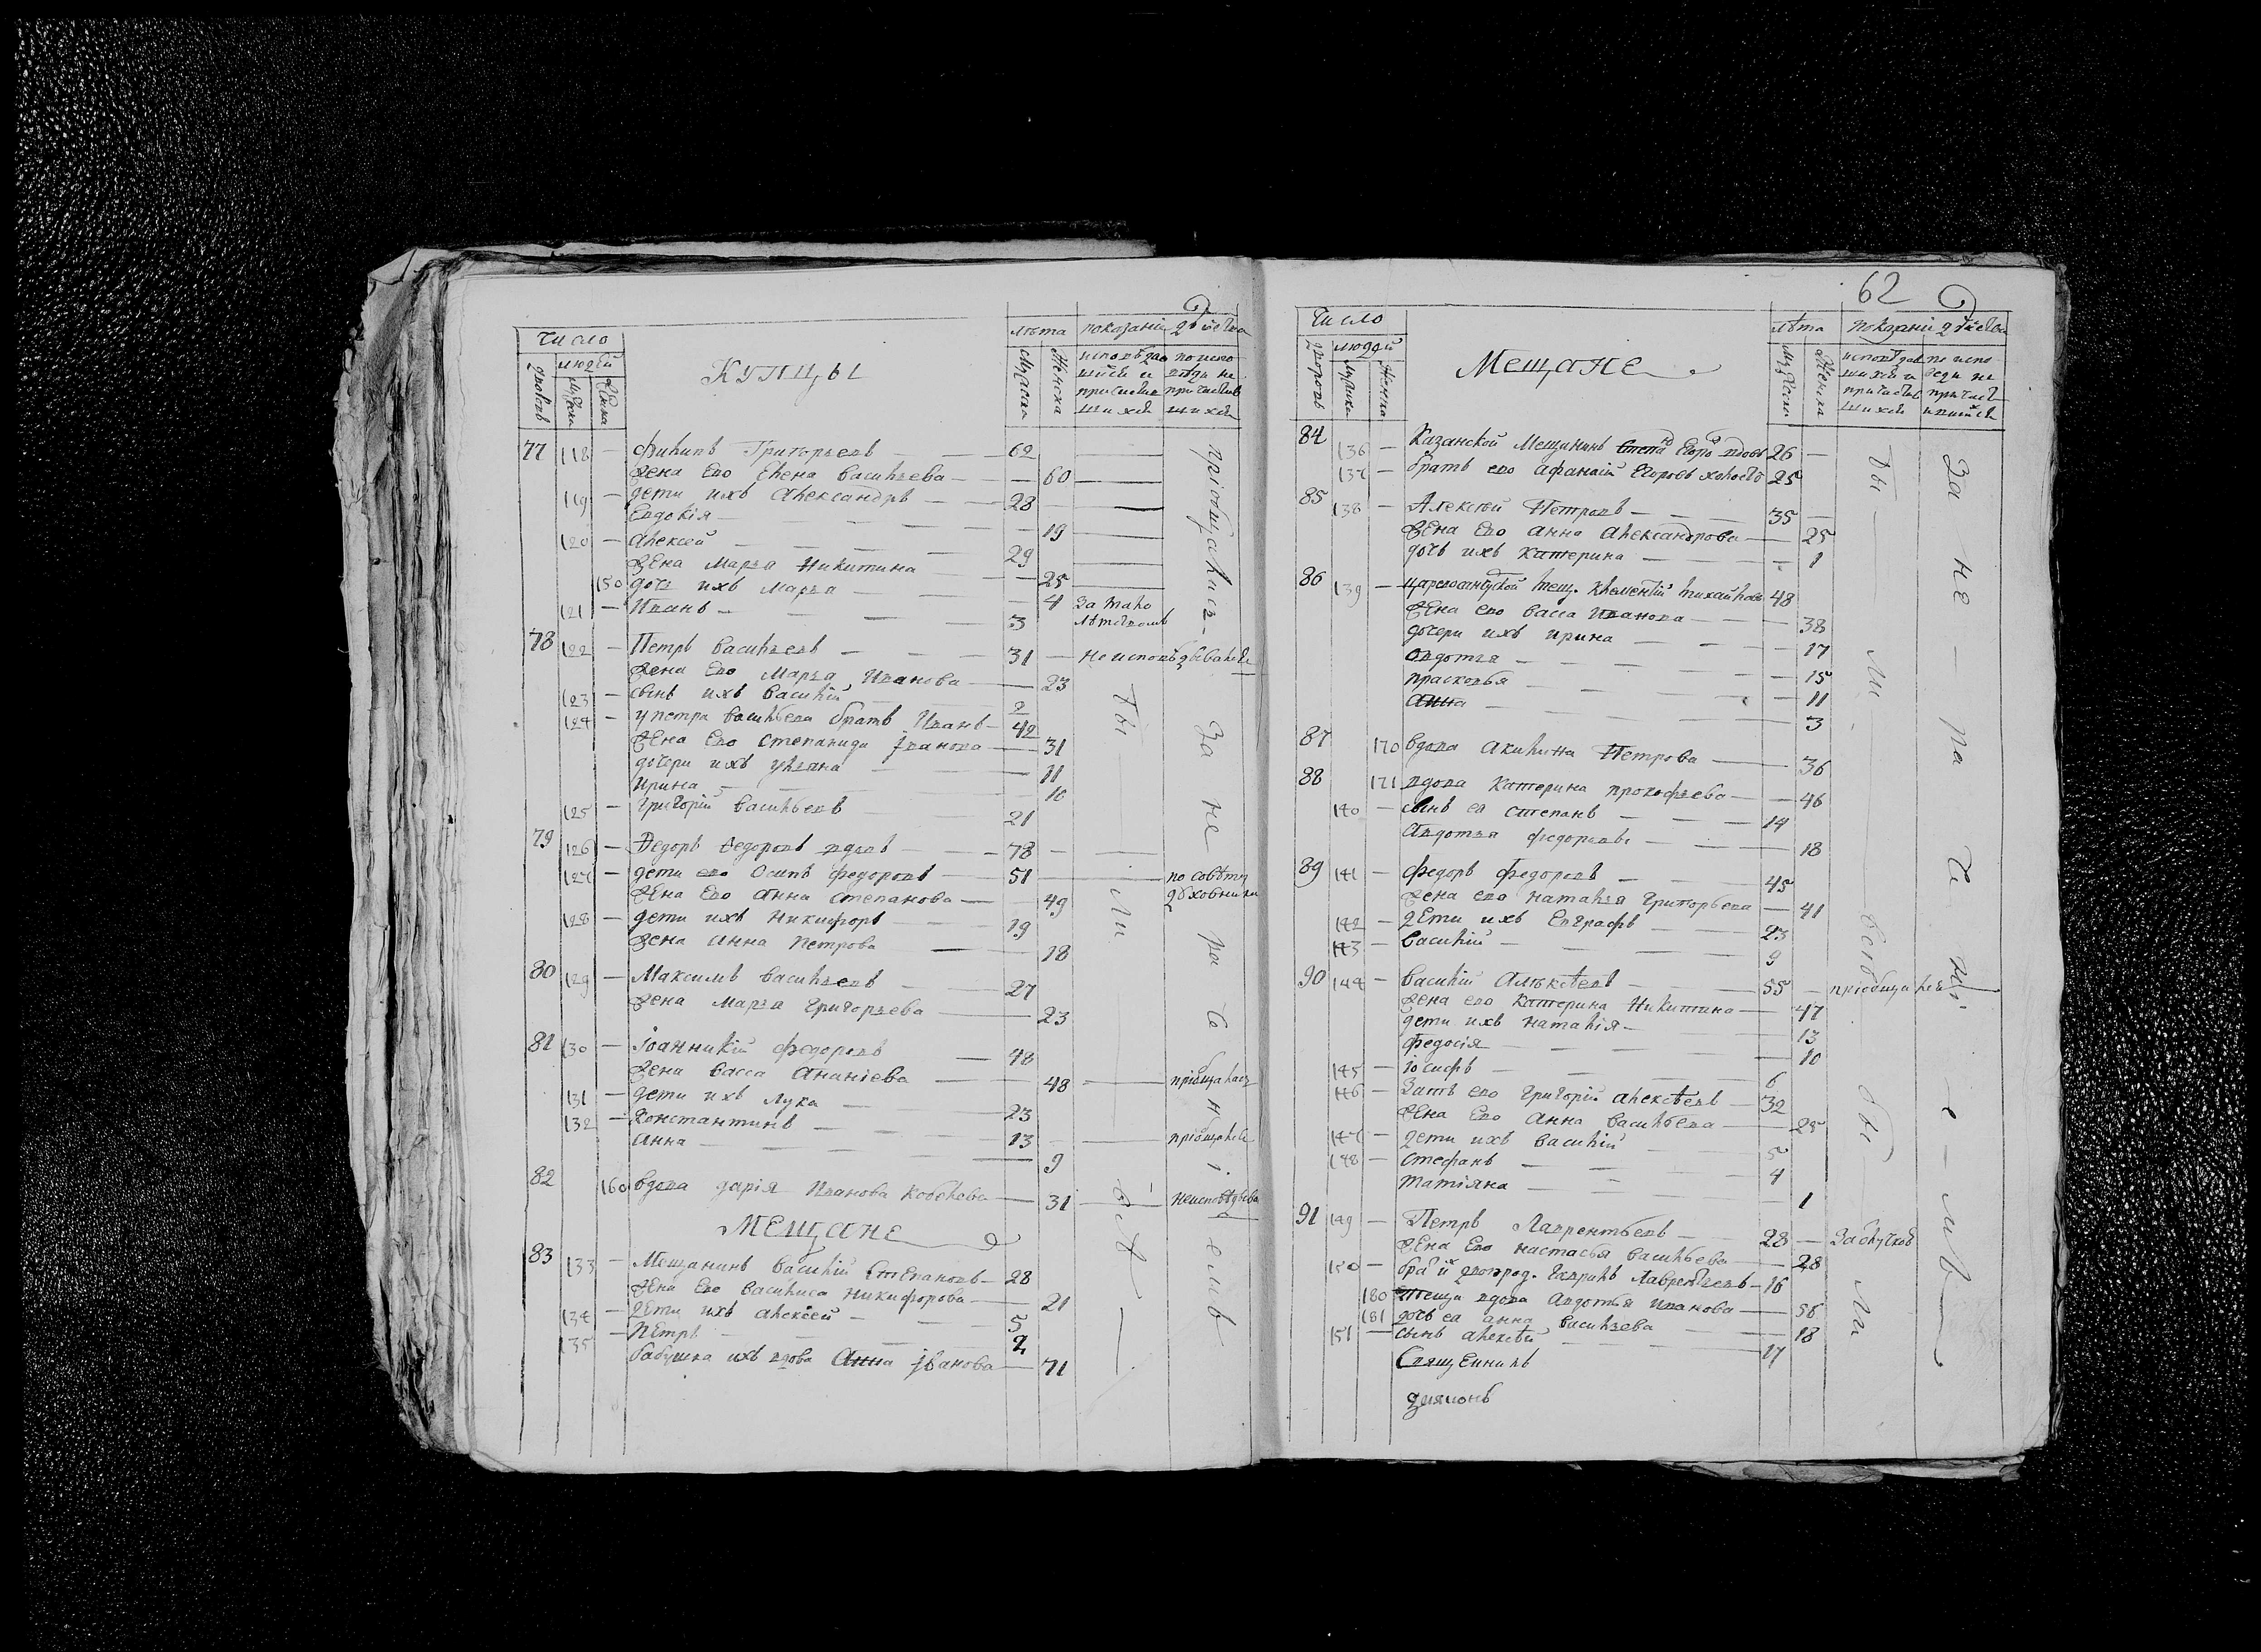 Число
людей
дворовъ
мужска
женска
КУПЦЫ
лѣта
мужска
женска
показаніе действа
77 118 — Филипъ Григорьевъ — 62
жена Его Елена Васильева — 60
119 — дети ихъ Александръ — 28
Евдокія — 19
120 — Алексей — 29
жена Марья Никитина — 25
150 дочь ихъ Марья — 4 за мало
121 — Иванъ — 3 лѣтствомъ
78 122 — Петръ Васильевъ — 31 — не исповѣдывался
жена Его Марья Иванова — 23
123 — сынъ ихъ Василій — 2
124 — у петра Васильева братъ Иванъ — 42
жена Его Степанида Іванова — 31
дочери ихъ Ульяна — 11
Ирина — 10
125 — Григорій Васильевъ — 21
79 126 — Ѳедоръ Ѳедоровъ вдовъ — 78
127 — дети его Осипъ Федоровъ — 51 — по совѣту
жена Его Анна Степанова — 49 духовника
128 — дети ихъ Никифоръ — 19
жена Анна Петрова — 18
80 129 — Максимъ Васильевъ — 27
жена Марья Григорьева — 23
81 130 — Іоанникій Федоровъ — 48
жена Васса Ананіева — 48
131 — дети ихъ Лука — 23
132 — Константинъ — 13
Анна — 9
82 160 вдова Дарія Иванова — 31
МЕЩАНЕ
83 133 — Мещанинъ Василій Степановъ — 28
жена Его Василиса Никифорова — 21
134 — дети ихъ Алексей — 5
135 — Петръ — 2
бабушка ихъ вдова Анна Іванова — 71
62
Число
людей
дворовъ
мужска
женска
Мещане
лѣта
мужска
женска
84 136 — Казанской Мещанинъ вдовъ 26
137 — братъ его Афанасій Егоровъ холостъ 25
85 138 — Алексѣй Петровъ — 35
жена Его Анна Александрова — 25
дочь ихъ Катерина — 1
86 139 — мещ. Климентій Михайловъ 48
жена его Васса Иванова — 38
дочери ихъ Ирина — 17
Овдотья — 15
Прасковья — 11
Анна — 3
87 170 вдова Акилина Петрова — 36
88 171 вдова Катерина Прокофьева — 46
140 — сынъ ея Степанъ — 14
Авдотья Федоровы — 18
89 141 — Федоръ Федоровъ — 45
жена его Наталья Григорьева — 41
142 — дети ихъ Евграфъ — 23
143 — Василій — 9
90 144 — Василій Алѣксѣевъ — 55 —
жена его Катерина Никитина — 47
дети ихъ Наталія — 13
Федосія — 10
145 — Іосифъ — 6
146 — Зять его Григорій Алексѣевъ — 32
жена Его Анна Васильева — 25
147 — дети ихъ Василій — 5
148 — Стефанъ — 4
Татіяна — 1
91 149 — Петръ Лаврентьевъ — 28 —
жена Его Настасья Васильева — 28
150 — Гаврилъ Лаврентьевъ — 16
180 теща вдова Авдотья Иванова — 56
181 дочь ея Анна Васильева — 18
151 — сынъ Алексѣй — 17
Священникъ
Диаконъ